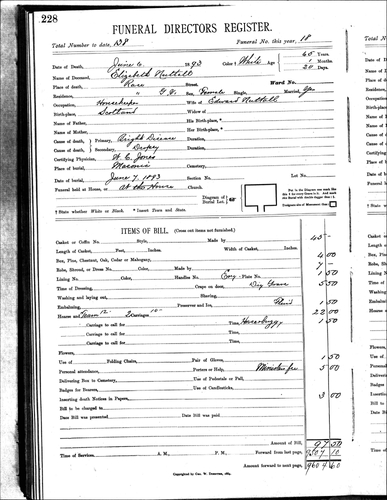 228
FUNERAL DIRECTORS REGISTER.
Total Number to date, 138 Funeral No. this year, 18
Date of Death, June 6, 1893 Color † White Age 65 Years
1 Months
20 Days
Name of Deceased, Elizabeth Nuttall
Place of death, Race Street, Ward No.
Residence, " Sex, Female Single, Married, Yes
Occupation, Housekeeper Wife of Edward Nuttall
Birthplace, Scotland Widow of
Name of Father, His Birthplace, *
Name of Mother, Her Birthplace, *
Cause of death, Primary, Bright Disease Duration,
Cause of death, Secondary, Dropsy Duration,
Certifying Physician, W. C. Jones
Place of burial, Masonic Cemetery,
Date of burial, June 7, 1893 Section No. Lot No.
Funeral held at House, or at the House Church.
Diagram of Burial Lot,
† State whether White or Black. * Insert Town and State.
ITEMS OF BILL, (Cross out items not furnished.)
Casket or Coffin No. Style, 45 -
Length of Casket, Feet, Inches. Width of Casket, Inches.
Box, Pine, Chestnut, Oak, Cedar or Mahogany, 4 00
Robe, Shroud, or Dress No. Made by 7 -
Lining No. Color, Handles No. Eng. Plate No. 1 50
Time of Dressing, Crape on door, 5 50
Washing and laying out, Shaving,
Embalming, Preserver and Ice, 1 50
Hearse and Team 12 - 2 Carriages 10 - 22 00
Carriage to call for Time, 1 50
Carriage to call for Time,
Carriage to call for Time,
Flowers,
Use of Folding Chairs, Pair of Gloves, 1 50
Porters or Help, Minister fee 5 00
Delivering Box to Cemetery, Use of Pedestals or Pall,
Badges for Bearers, Use of Candlesticks,
Inserting death Notices in Papers, 3 00
Bill to be charged to
Date Bill was presented Date Bill was paid
Amount of Bill, 97 50
Time of Services, A. M., P. M. Forward from last page, 9507 10
Amount forward to next page, 9604 60